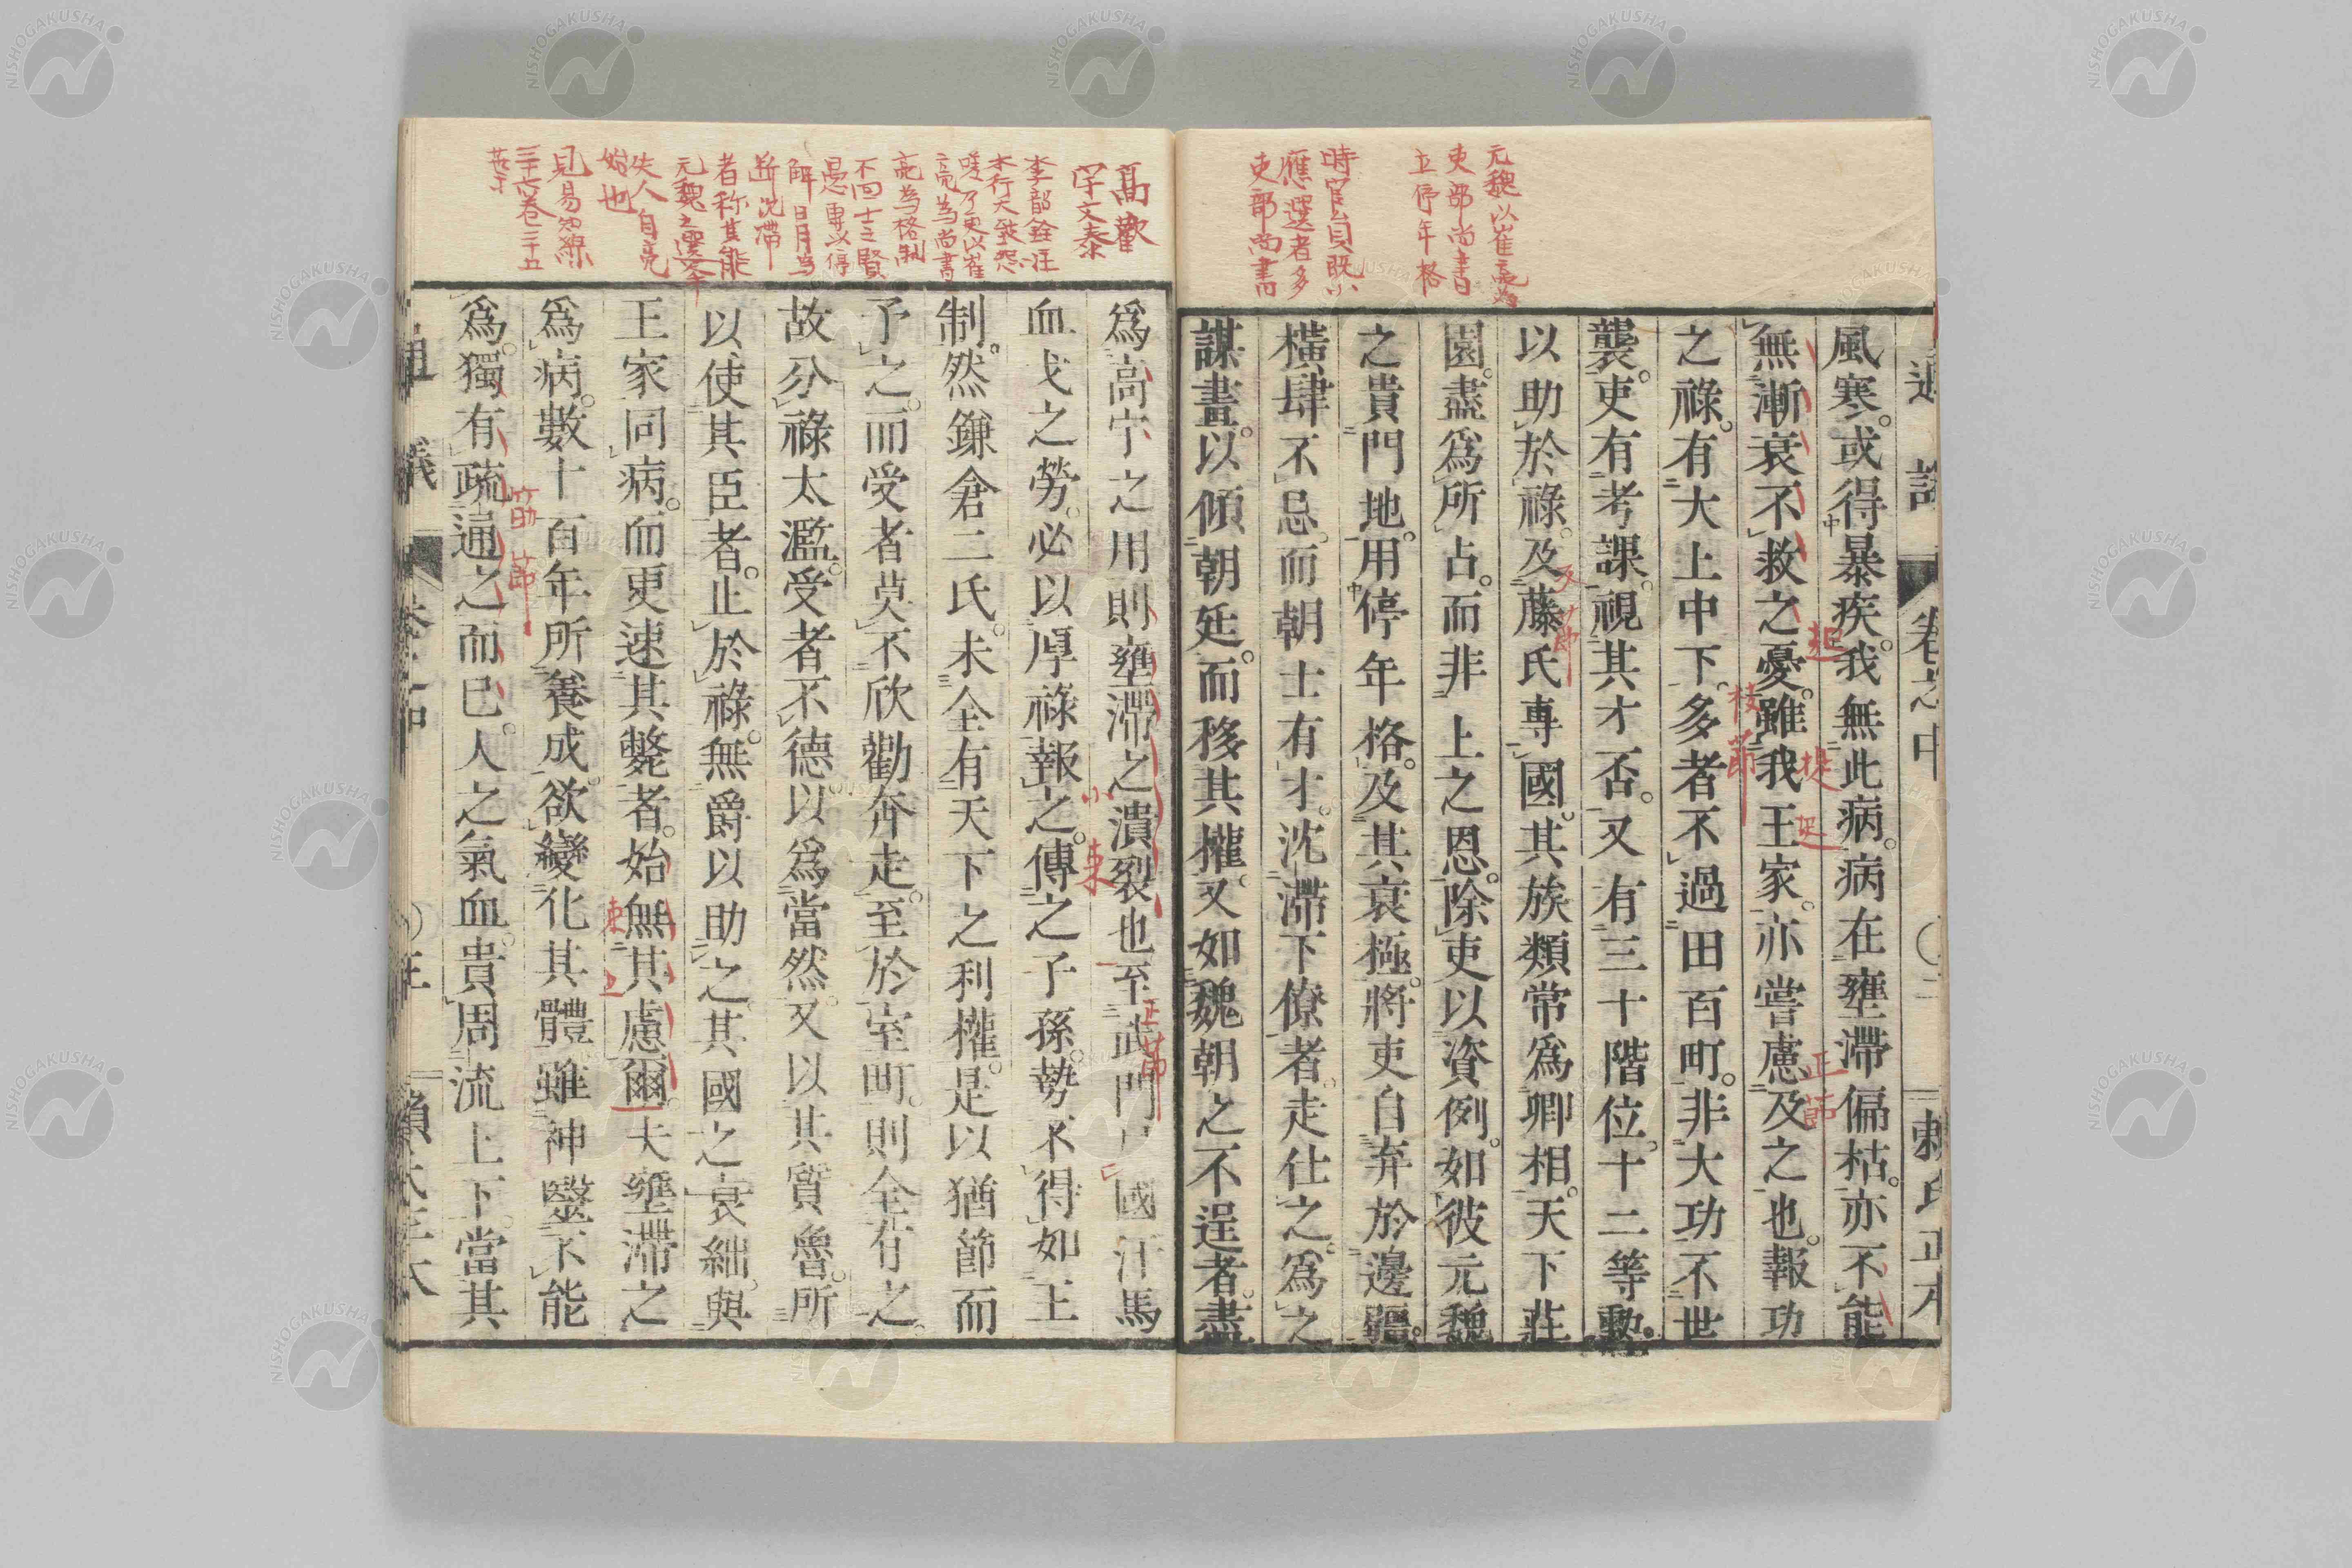 元魏以崔亮為
吏部尚書
立停年格
時官員既少
應選者多
吏部尚書
通議
卷之中
二
賴氏正本
風寒。或得暴疾。我無此病。病在壅滯偏枯。亦不能
無漸衰不救之憂。雖我王家。亦嘗慮及之也。報功
之祿。有大上中下。多者不過田百町。非大功不世
襲。吏有考課。視其才否。又有三十階位。十二等勳。
以助於祿。及藤氏專國。其族類常爲卿相。天下莊
園。盡爲所占。而非上之恩。除吏以資例。如彼元魏
之貴門地。用停年格。及其衰極。將吏自弃於邊疆。
橫肆不忌。而朝士有才。沈滯下僚者。走仕之。爲之
謀畫。以傾朝廷。而移其權。又如魏朝之不逞者。盡
高歡
宇文泰
李韶銓注
不行大致怨
嗟乃更以崔
亮為尚書
亮為格制
不問士之賢
愚專以停
解日月為
断沈滞
者称其能
元魏之選举
失人自亮
始也
見易知録
三十六卷三十五
爲高宇之用。則壅滯之潰裂也。至武門戶國。汗馬
血戈之勞。必以厚祿報之。傳之子孫。勢不得如王
制。然鎌倉二氏。未全有天下之利權。是以猶節而
予之。而受者莫不欣勸奔走。至於室町。則全有之。
故分祿太濫。受者不德以爲當然。又以其質魯。所
以使其臣者。止於祿。無爵以助之。其國之衰絀。與
王家同病。而更速其斃者。始無其慮爾。夫壅滯之
爲病。數十百年所養成。欲變化其體。雖神醫不能
爲。獨有疏通之而已。人之氣血。貴周流上下。當其
起
提
正節
枝節
又節
正節
小束
束上
筋節